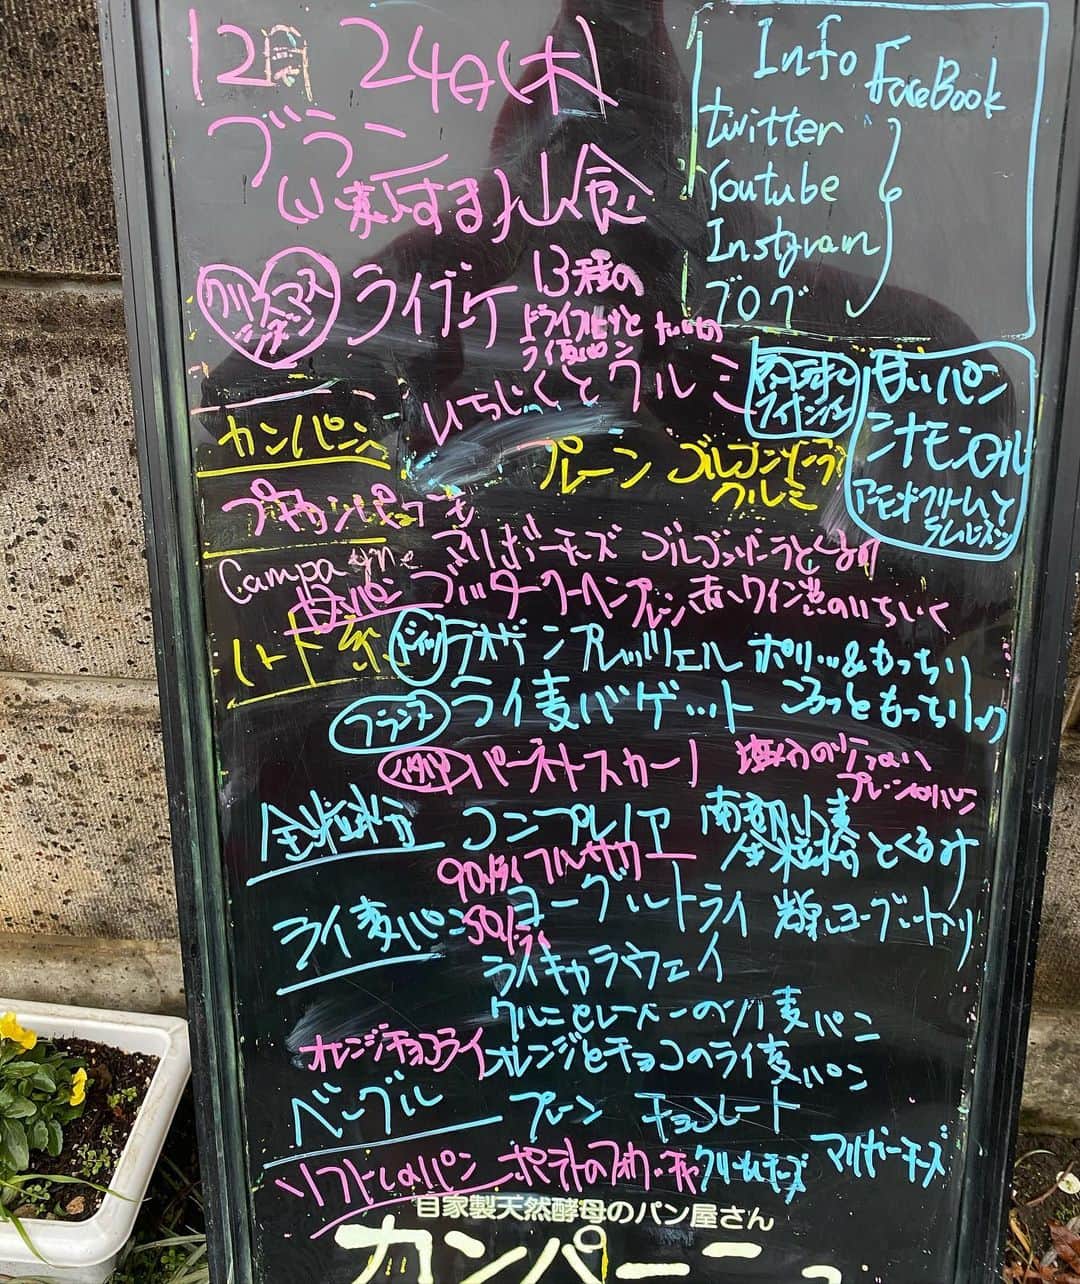 12月 24日(木)
ブラン
小麦
する 山食
クリスマス
シーズン
ライブーケ
13種の
ドライフルーツと
ライ麦パン
いちじくとクルミ
Info
FaceBook
twitter
Youtube
Instgram
ブログ
甘いパン
シナモンロール
アーモンドクリームと
ラムレーズン
カンパン
プレーン ゴルゴンゾーラ
クルミ
Campagne
マリボーチーズ ゴルゴンゾーラとくるみ
プレーン 赤ワイン煮のいちじく
ハード系
ドイツ ラオゲンプレッツェル ポリッ&もっちり
フランス ライ麦バゲット
もっちり
イタリア パーネトスカーノ 塩分の少ない
プレーン
全粒粉 コンプレノア 南部小麦
全粒粉とくるみ
90%ライ
ライ麦パン ヨーグルトライ
50%
ライキャラウェイ
ライ麦パン
オレンジチョコライ オレンジとチョコのライ麦パン
ベーグル プレーン チョコレート
ソフト パン ポテトのフォカッチャ クリームチーズ マリボーチーズ
自家製天然酵母のパン屋さん
カンパーニュ